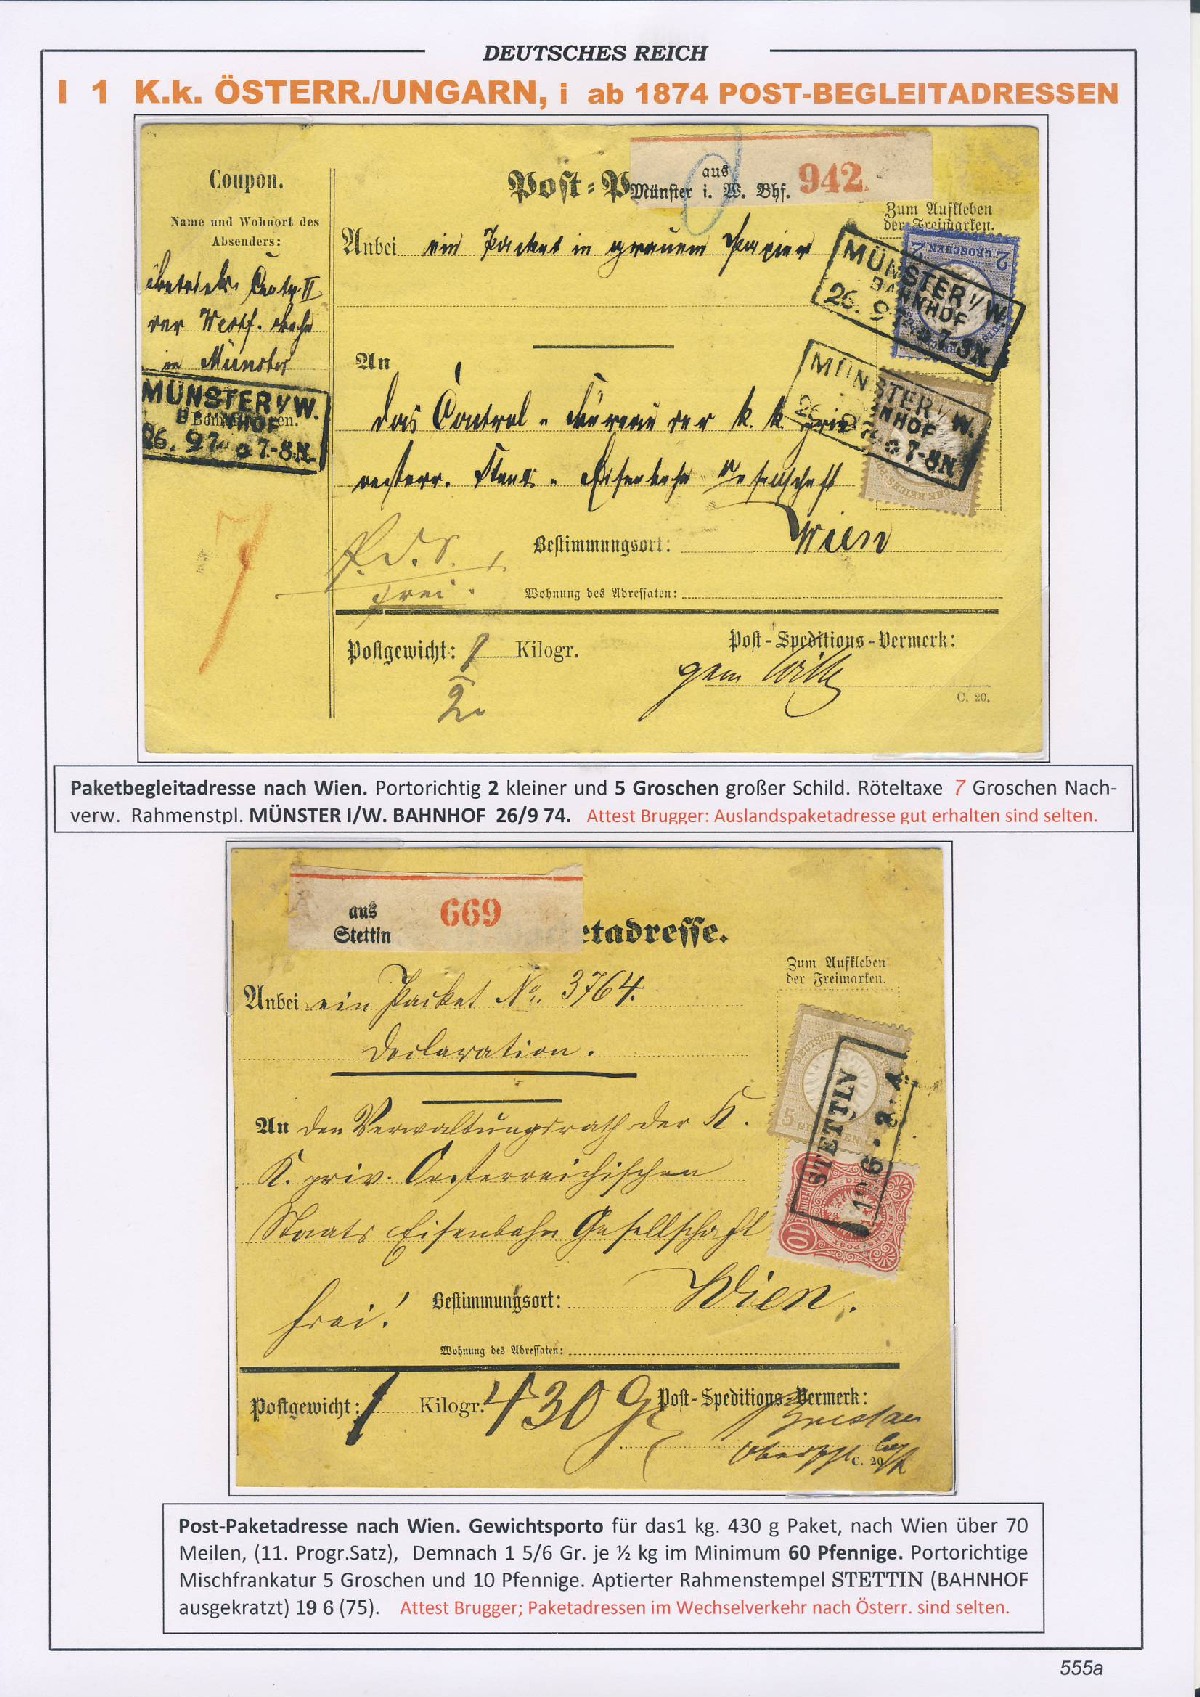 DEUTSCHES REICH
I 1 K.k. ÖSTERR./UNGARN, i ab 1874 POST-BEGLEITADRESSEN
Coupon.
Name und Wohnort des
Absenders:
der Westf. Bahn
in Münster
MÜNSTER I/W.
BAHNHOF
26. 9 74 7-8N
7
Post-P
aus
Münster i. W. Bhf.
942.
Zum Aufkleben
der Freimarken.
2 GROSCHEN 2
Anbei ein Packet in grauem Papier
MÜNSTER I/W.
BAHNHOF
26. 9 74 7-8N
An
das Control-Bureau der k. k. priv.
MÜNSTER I/W.
BAHNHOF
26. 9 74 7-8N
oesterr. Staats-Eisenbahn Gesellschaft
Bestimmungsort: Wien
frei.
Wohnung des Adressaten:
Postgewicht: 1/2 Kilogr.
Post-Speditions-Vermerk:
C. 20.
Paketbegleitadresse nach Wien. Portorichtig 2 kleiner und 5 Groschen großer Schild. Röteltaxe 7 Groschen Nach-
verw. Rahmenstpl. MÜNSTER I/W. BAHNHOF 26/9 74. Attest Brugger: Auslandspaketadresse gut erhalten sind selten.
aus
Stettin
669
etadresse.
Zum Aufkleben
der Freimarken.
Anbei ein Packet No. 3764.
Declaration.
An den Verwaltungsrath der K.
K. priv. Oesterreichischen
Staats Eisenbahn Gesellschaft
STETTIN
19 6. 2-4
5
10
frei!
Bestimmungsort: Wien.
Wohnung des Adressaten:
Postgewicht: 1 Kilogr. 430 Gr
Post-Speditions-Vermerk:
C. 20.
Post-Paketadresse nach Wien. Gewichtsporto für das1 kg. 430 g Paket, nach Wien über 70
Meilen, (11. Progr.Satz), Demnach 1 5/6 Gr. je ½ kg im Minimum 60 Pfennige. Portorichtige
Mischfrankatur 5 Groschen und 10 Pfennige. Aptierter Rahmenstempel STETTIN (BAHNHOF
ausgekratzt) 19 6 (75). Attest Brugger; Paketadressen im Wechselverkehr nach Österr. sind selten.
555a